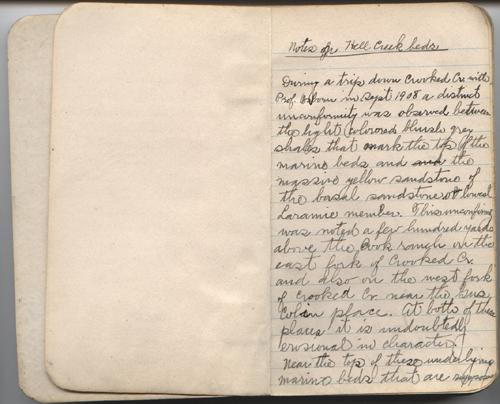 Notes on Hell Creek beds
During a trip down Crooked Cr. with
Prof. Osborn in Sept 1908 a distinct
unconformity was observed between
the light colored bluish grey
shales that mark the top of the
marine beds and the
massive yellow sandstone of
the basal sandstone or lowest
Laramie member. This unconformity
was noted a few hundred yards
above the Cook ranch on the
east fork of Crooked Cr.
and also on the west fork
of Crooked Cr. near the Gus
Colin place. At both of these
places it is undoubtedly
erosional in character.
Near the top of these underlying
marine beds that are